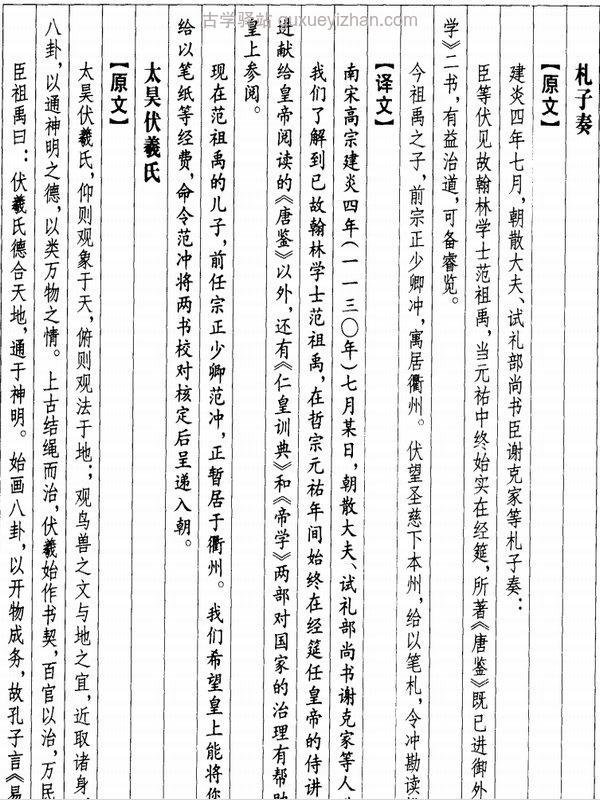 古学驿站 guxueyizhan.com
札子奏
【原文】
建炎四年七月，朝散大夫、试礼部尚书臣谢克家等札子奏：
臣等伏见故翰林学士范祖禹，当元祐中终始实在经筵，所著《唐鉴》既已进御外
学》二书，有益治道，可备睿览。
今祖禹之子，前宗正少卿冲，寓居衢州。伏望圣慈下本州，给以笔札，令冲勘读
【译文】
南宋高宗建炎四年(一一三〇年)七月某日，朝散大夫、试礼部尚书谢克家等人
我们了解到已故翰林学士范祖禹，在哲宗元祐年间始终在经筵任皇帝的侍讲
进献给皇帝阅读的《唐鉴》以外，还有《仁皇训典》和《帝学》两部对国家的治理有帮助
皇上参阅。
现在范祖禹的儿子，前任宗正少卿范冲，正暂居于衢州。我们希望皇上能将你
给以笔纸等经费，命令范冲将两书校对核定后呈递入朝。
太昊伏羲氏
【原文】
太昊伏羲氏，仰则观象于天，俯则观法于地；观鸟兽之文与地之宜，近取诸身，
八卦，以通神明之德，以类万物之情。上古结绳而治，伏羲始作书契，百官以治，万民
臣祖禹曰：伏羲氏德合天地，通于神明。始画八卦，以开物成务，故孔子言《易